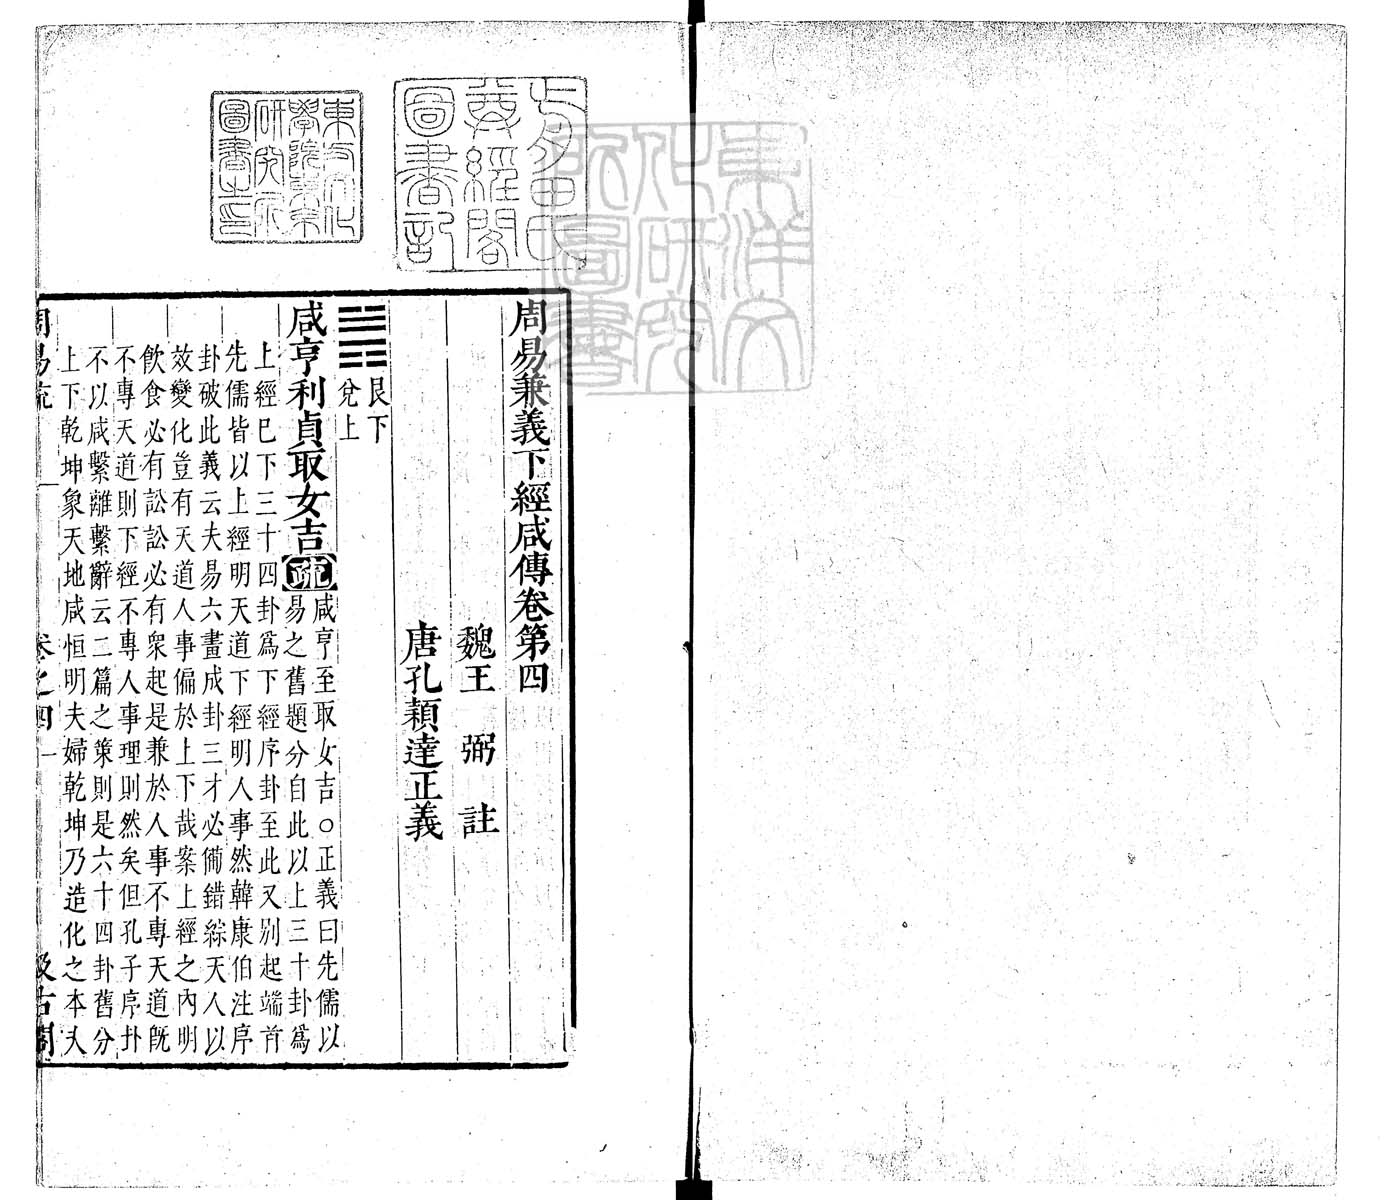 周易兼義下經咸傳卷第四
魏王弼註
唐孔穎達正義
艮下
兌上
咸亨利貞取女吉疏咸亨至取女吉○正義曰先儒以
易之舊題分自此以上三十卦爲
上經已下三十四卦爲下經序卦至此又别起端首
先儒皆以上經明天道下經明人事然韓康伯注序
卦破此義云夫易六畫成卦三才必備錯綜天人以
效變化豈有天道人事偏於上下哉案上經之內明
飲食必有訟訟必有衆起是兼於人事不專天道既
不專天道則下經不專人事理則然矣但孔子序卦
不以咸繫離繫辭云二篇之策則是六十四卦舊分
上下乾坤象天地咸恒明夫婦乾坤乃造化之本夫
周易疏
卷之四
一
汲古閣
東方文化
學院東京
研究所
圖書之印
尊經閣
圖書記
東洋文
化研究
所圖書